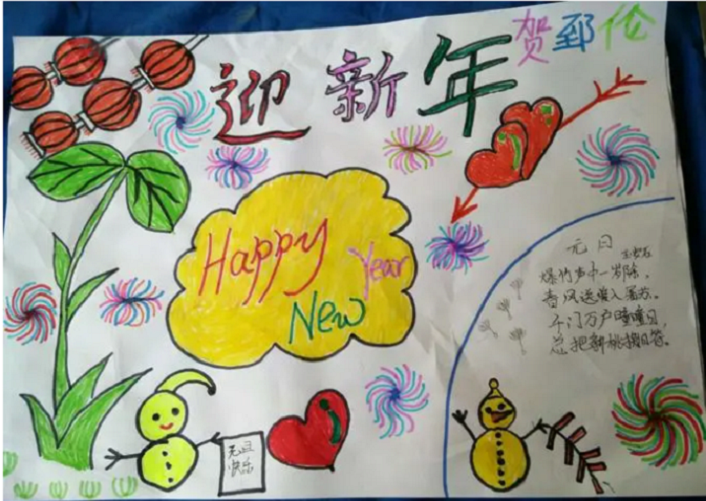 迎新年
贺郅伦
Happy
Year
New
元日 王安石
爆竹声中一岁除，
春风送暖入屠苏。
千门万户曈曈日
总把新桃换旧符。
元旦
快乐